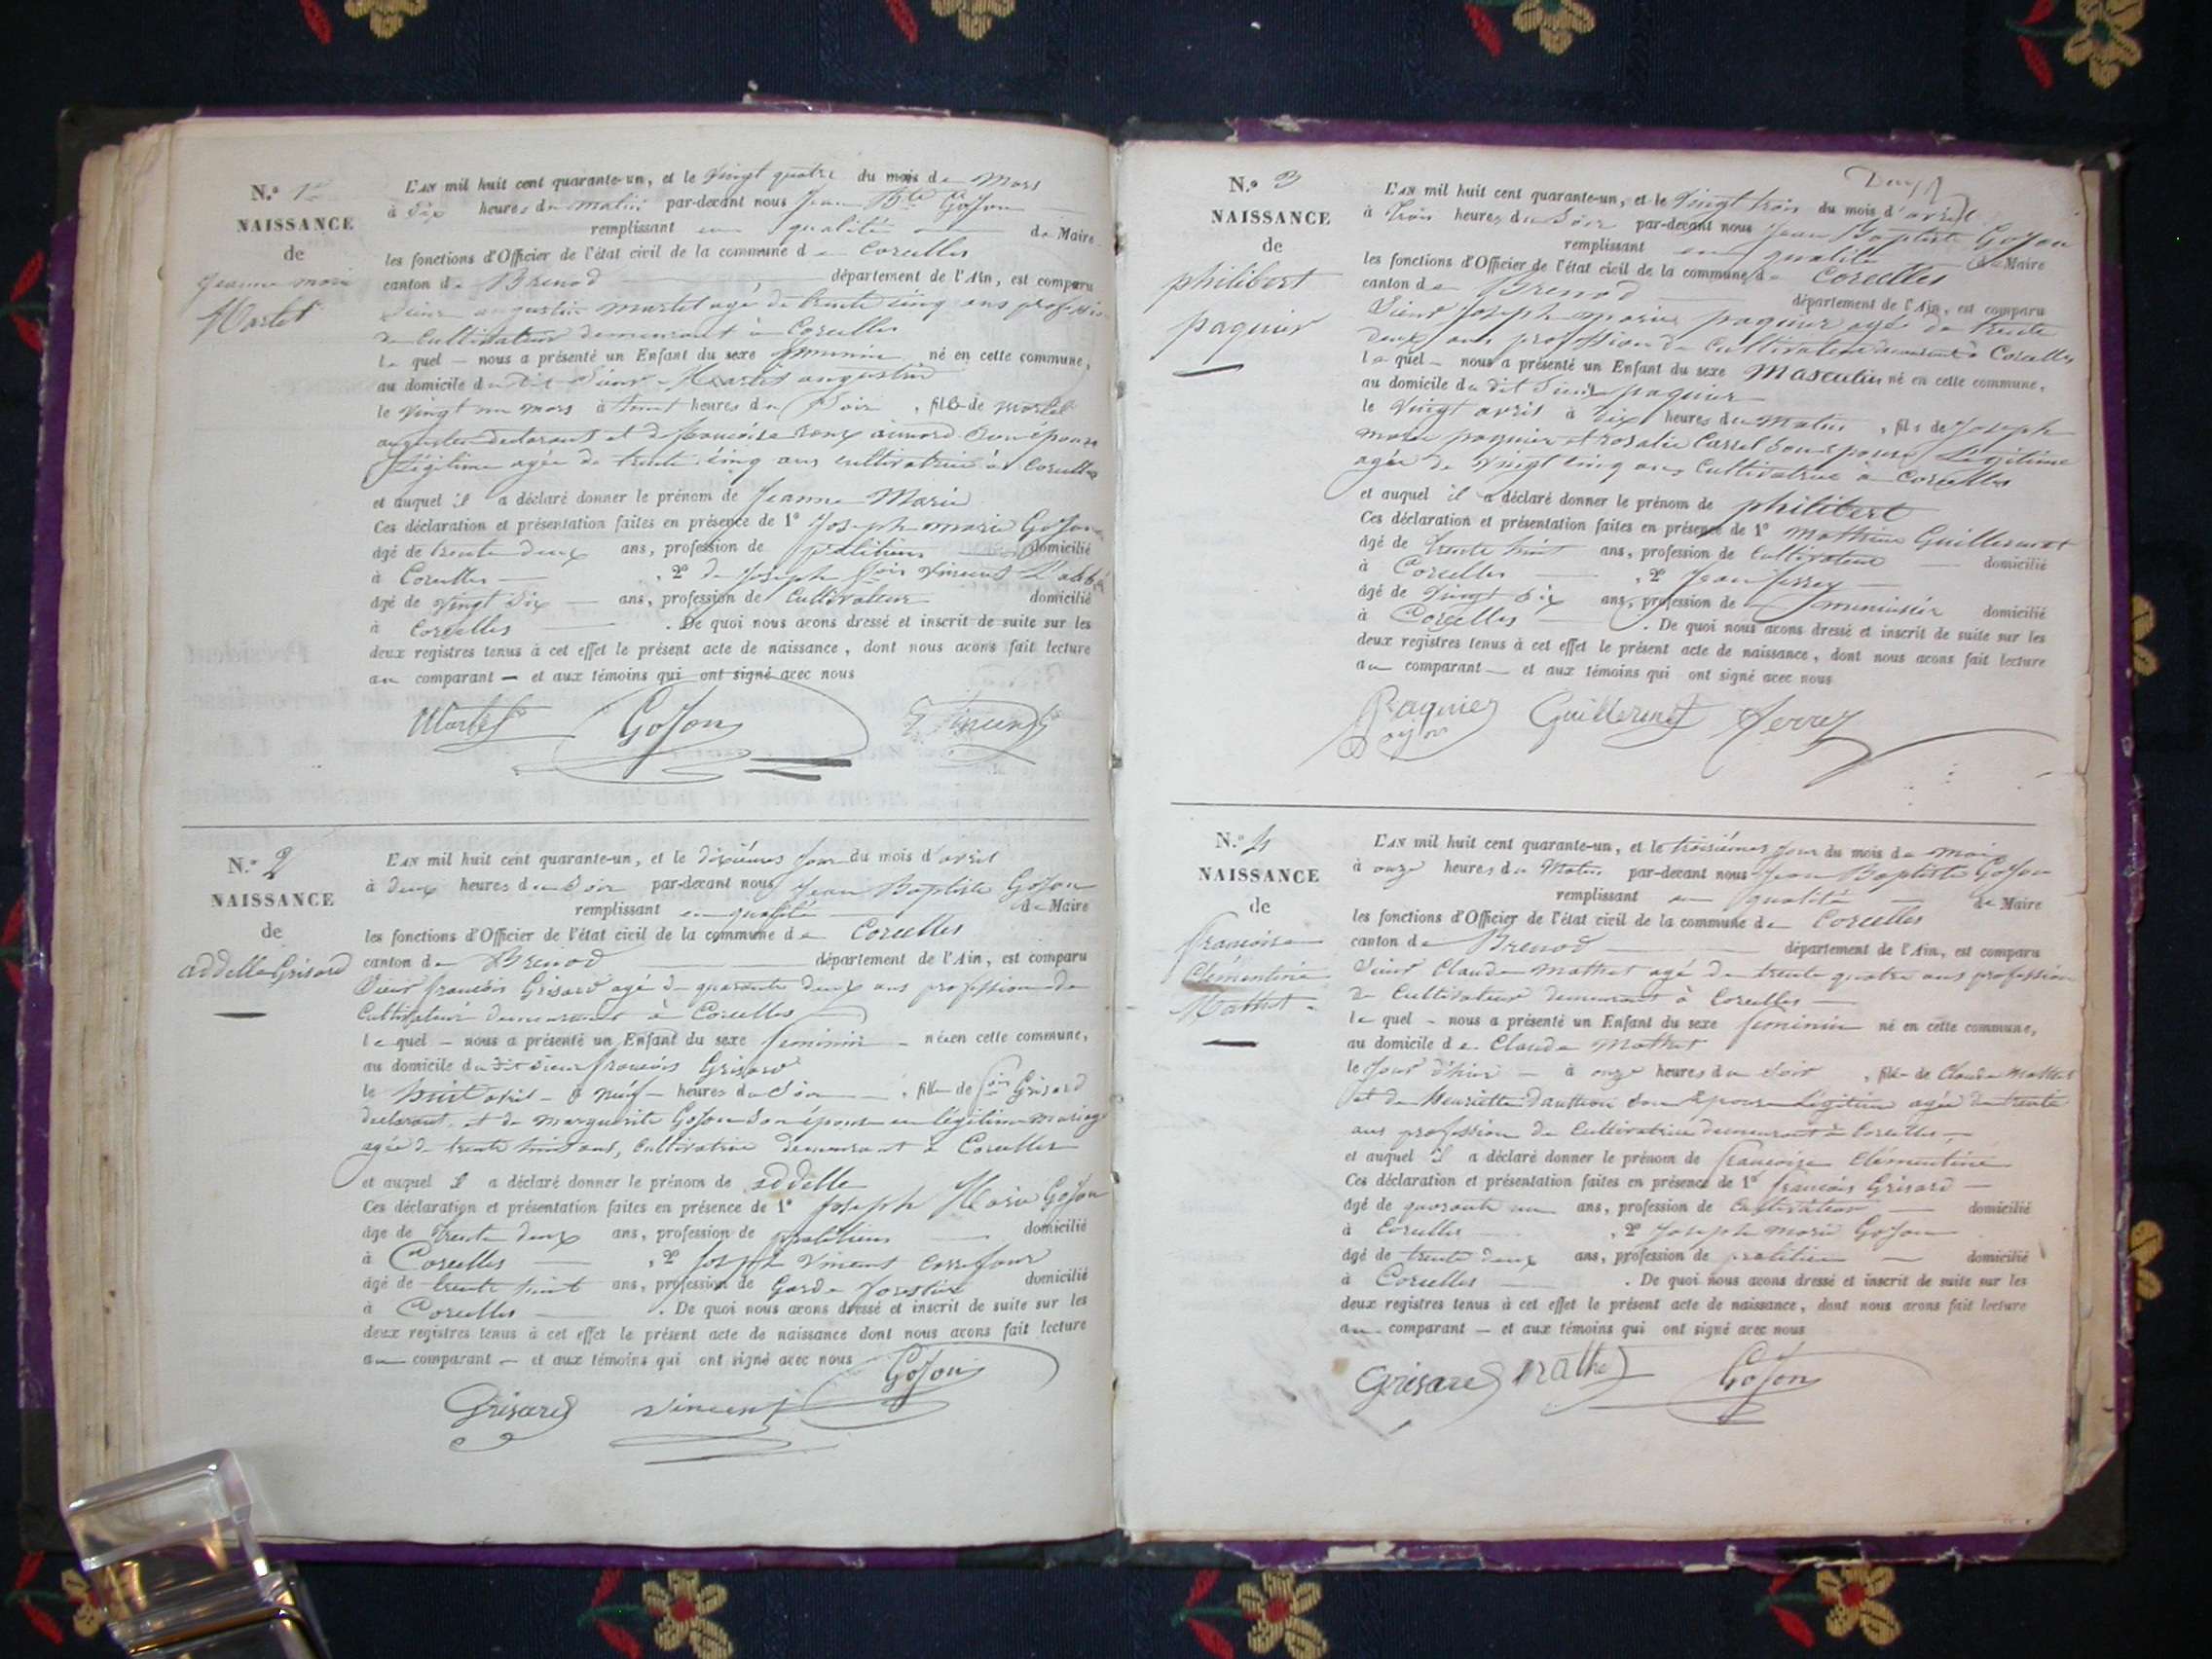 N.º 1er
NAISSANCE
de
Jeanne Marie
Martel
L'AN mil huit cent quarante-un, et le vingt quatre du mois de Mars
à Six heures du matin par-devant nous Jean Bte Goyon
remplissant en qualité de Maire
les fonctions d'Officier de l'état civil de la commune de Corcelles
canton de Brenod département de l'Ain, est comparu
Sieur augustin martel agé de trente cinq ans profession
de Cultivateur demeurant à Corcelles
lequel nous a présenté un Enfant du sexe feminin né en cette commune,
au domicile du dit Sieur Martel augustin
le vingt un mars à heures du Soir , fille de martel
augustin declarant et de francoise roux son épouse
Légitime agée de trente cinq ans cultivatrice à Corcelles
et auquel il a déclaré donner le prénom de Jeanne Marie
Ces déclaration et présentation faites en présence de 1º Joseph marie Goyon
âgé de trente deux ans, profession de praticien domicilié
à Corcelles , 2º de Joseph fois Vincent
âgé de vingt Six ans, profession de Cultivateur domicilié
à Corcelles . De quoi nous avons dressé et inscrit de suite sur les
deux registres tenus à cet effet le présent acte de naissance, dont nous avons fait lecture
au comparant — et aux témoins qui ont signé avec nous
Martel Goyon Vincent
N.º 2
NAISSANCE
de
addelle Grisard
L'AN mil huit cent quarante-un, et le dixiémes Jour du mois d'avril
à deux heures du Soir par-devant nous Jean Baptiste Goyon
remplissant en qualité de Maire
les fonctions d'Officier de l'état civil de la commune de Corcelles
canton de Brenod département de l'Ain, est comparu
Sieur francois Grisard agé de quarante deux ans profession de
Cultivateur demeurant à Corcelles
lequel — nous a présenté un Enfant du sexe feminin — née en cette commune,
au domicile du dit sieur francois Grisard
le huit avril — à neuf — heures du Soir , fille de fois Grisard
declarant, et de marguerite Goyon Son épouse en légitime mariage
agée de trente huit ans, cultivatrice demeurant à Corcelles
et auquel il a déclaré donner le prénom de addelle
Ces déclaration et présentation faites en présence de 1º Joseph Marie Goyon
âge de trente deux ans, profession de praticien domicilié
à Corcelles — , 2º Joseph Vincent
âgé de trente huit ans, profession de Garde forestier domicilié
à Corcelles . De quoi nous avons dressé et inscrit de suite sur les
deux registres tenus à cet effet le présent acte de naissance dont nous avons fait lecture
au comparant — et aux témoins qui ont signé avec nous
Goyon
Grisard Vincent
N.º 3
NAISSANCE
de
philibert
paquier
Deux
L'AN mil huit cent quarante-un, et le Vingt trois du mois d'avril
à trois heures du Soir par-devant nous Jean Baptiste Goyon
remplissant en qualité de Maire
les fonctions d'Officier de l'état civil de la commune de Corcelles
canton de Brenod département de l'Ain, est comparu
Sieur Joseph marie paquier agé de trente
deux ans profession de Cultivateur demeurant à Corcelles
lequel — nous a présenté un Enfant du sexe Masculin né en cette commune,
au domicile du dit Sieur paquier
le Vingt avril à dix heures du Matin , fils de Joseph
marie paquier et rosalie Carrel Son épouse Légitime
agée de vingt cinq ans Cultivatrice à Corcelles
et auquel il a déclaré donner le prénom de philibert
Ces déclaration et présentation faites en présence de 1º Mathieu Guillermet
âgé de trente huit ans, profession de Cultivateur domicilié
à Corcelles , 2º Jean ferrey
âgé de Vingt Six ans, profession de menuisier domicilié
à Corcelles . De quoi nous avons dressé et inscrit de suite sur les
deux registres tenus à cet effet le présent acte de naissance, dont nous avons fait lecture
au comparant — et aux témoins qui ont signé avec nous
Paquier Guillermet ferrey
Goyon
N.º 4
NAISSANCE
de
francoise
Clémentine
Mathet
L'AN mil huit cent quarante-un, et le troisiémes Jour du mois de mai
à onze heures du Matin par-devant nous Jean Baptiste Goyon
remplissant en qualité de Maire
les fonctions d'Officier de l'état civil de la commune de Corcelles
canton de Brenod département de l'Ain, est comparu
Sieur Claude Mathet agé de trente quatre ans profession
de Cultivateur demeurant à Corcelles —
lequel — nous a présenté un Enfant du sexe feminin né en cette commune,
au domicile de Claude Mathet
le Jour d'hier — à onze heures du Soir , fille de Claude Mathet
et de Henriette Son Epouse Légitime agée de trente
ans profession de Cultivatrice demeurant à Corcelles —
et auquel il a déclaré donner le prénom de francoise Clémentine
Ces déclaration et présentation faites en présence de 1º francois Grisard —
âgé de quarante un ans, profession de Cultivateur — domicilié
à Corcelles , 2º Joseph Marie Goyon
âgé de trente deux ans, profession de praticien — domicilié
à Corcelles . De quoi nous avons dressé et inscrit de suite sur les
deux registres tenus à cet effet le présent acte de naissance, dont nous avons fait lecture
au comparant — et aux témoins qui ont signé avec nous
Grisard Mathet Goyon